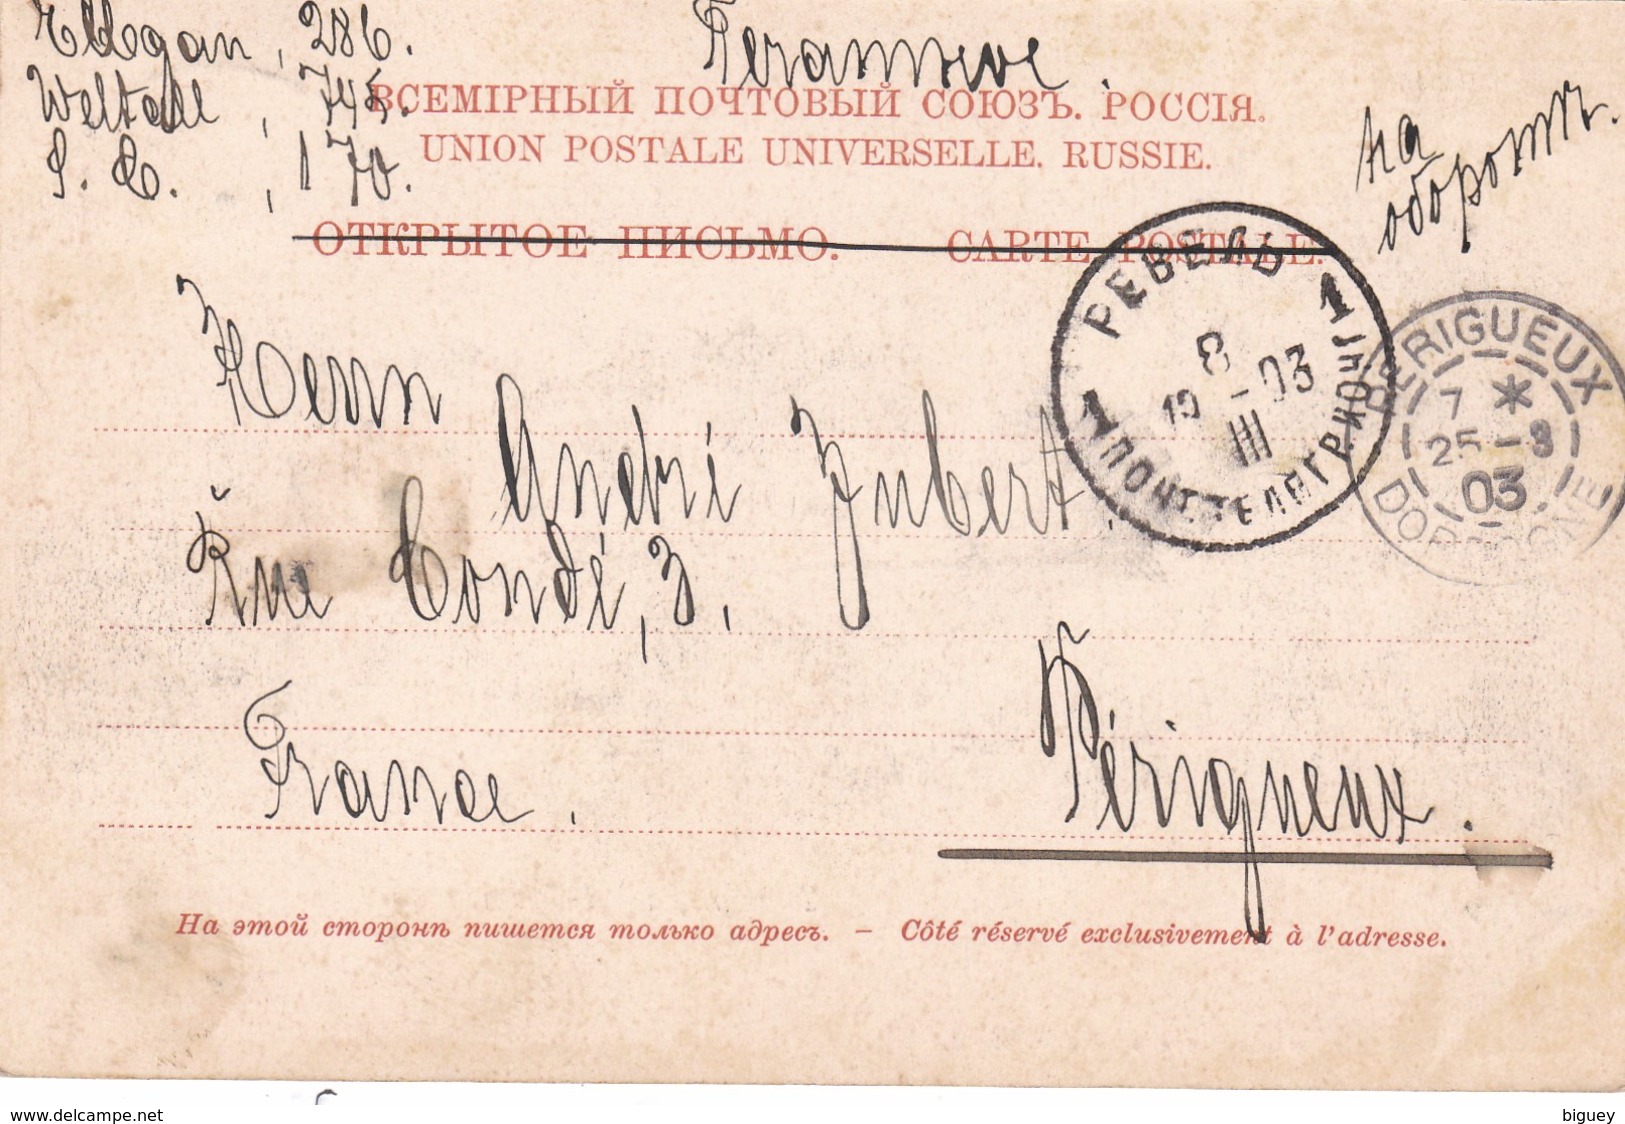 Weltall, 745.
S. C., 170.
286.
ВСЕМІРНЫЙ ПОЧТОВЫЙ СОЮЗЪ. РОССІЯ.
UNION POSTALE UNIVERSELLE. RUSSIE.
на
оборотѣ.
ОТКРЫТОЕ ПИСЬМО. CARTE POSTALE.
РЕВЕЛЬ
1 1
8
19 - 03
III
PÉRIGUEUX
7 *
25 - 3
03
DORDOGNE
Herrn
André Jubert.
Rue Condé, 3.
France. Périgueux.
На этой сторонѣ пишется только адресъ. – Côté réservé exclusivement à l'adresse.
www.delcampe.net
biguey